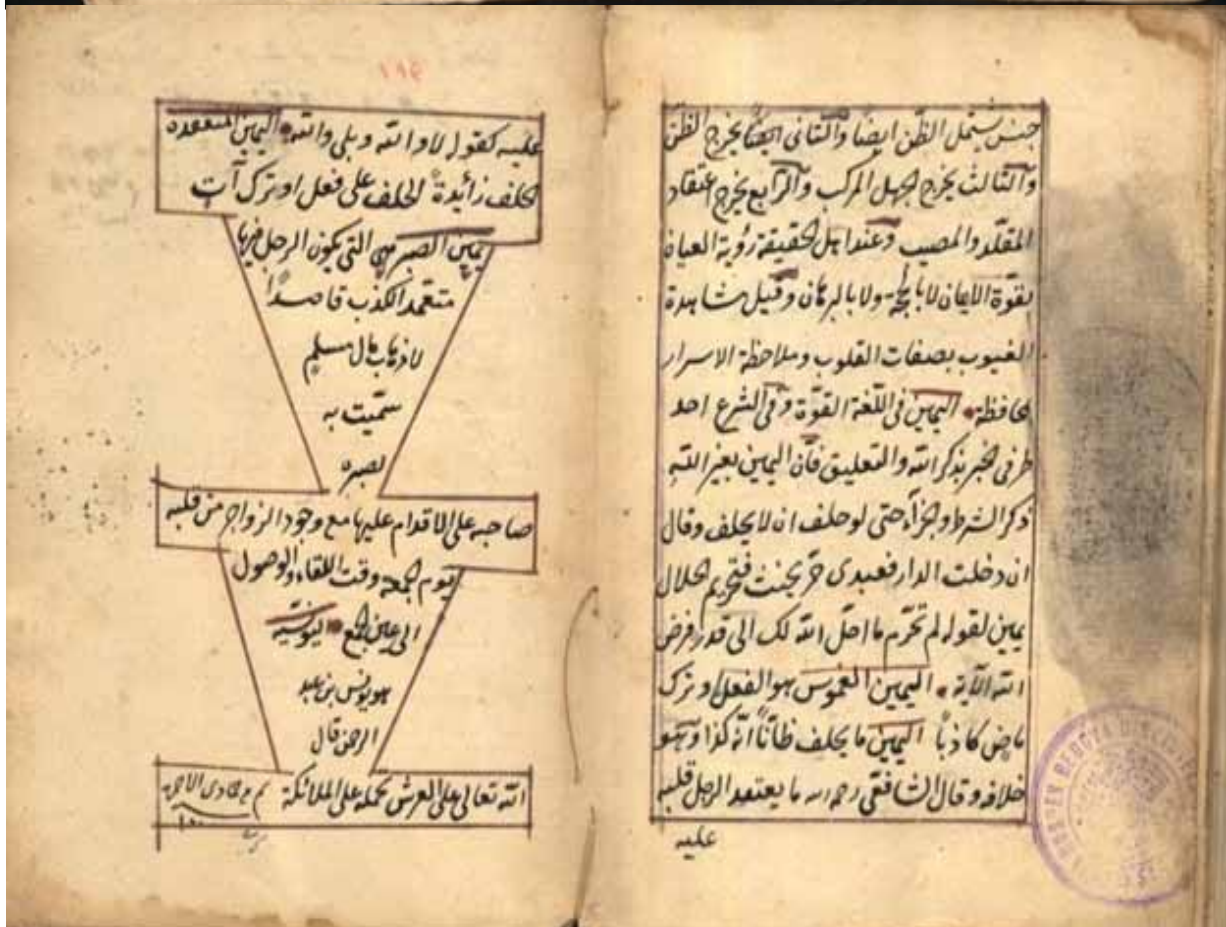 جنس يشتمل الظن ايضاً والثانى ايضاً يخرج الظن
والثالث يخرج الجهل المركب والرابع يخرج اعتقاد
المقلد والمصيب وعند اهل الحقيقة رؤية العيان
بقوة الايمان لا بالحجة ولا بالبرهان وقيل مشاهدة
الغيوب بصفات القلوب وملاحظة الاسرار
بمحافظة اليمين فى اللغة القوة وفى الشرع احد
طرفى الخبر بذكر الله والتعليق فان اليمين بغير الله
ذكر الشرط والجزاء حتى لو حلف ان لا يحلف وقال
ان دخلت الدار فعبدى حر يحنث فتحريم الحلال
يمين لقوله لم تحرم ما احل الله لك الى قد فرض
الله الآية اليمين الغموس هو الفعل او ترك
ماض كاذباً اليمين ما يحلف ظاناً انه كذا وهو
خلافه وقال الشافعى رحمه الله ما يعتقد الرجل قلبه
عليه
عليه كقوله لا والله وبلى والله اليمين المنعقدة
الحلف على فعل او ترك آت
يمين الصبر هى التى يكون الرجل فيها
متعمد الكذب قاصداً
لاذهاب مال مسلم
سميت به
لصبره
صاحبه على الاقدام عليها مع وجود الزواجر من قلبه
يوم الجمعة وقت اللقاء والوصول
الى عين الجمع اليونسية
هو يونس بن عبد
الرحمن قال
الله تعالى على العرش تحمله الملائكة